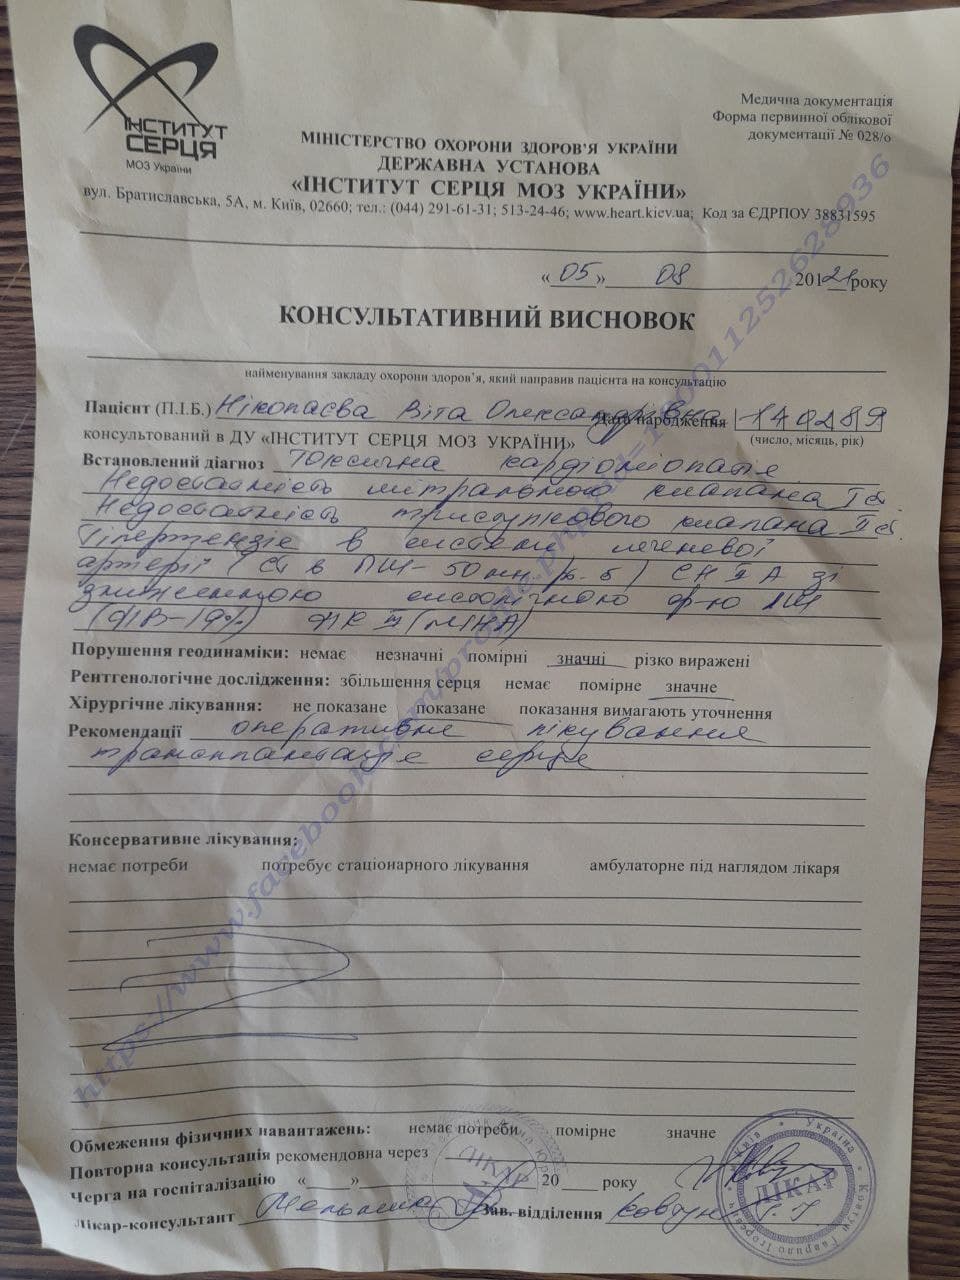 ІНСТИТУТ
СЕРЦЯ
МОЗ України
Медична документація
Форма первинної облікової
документації № 028/о
МІНІСТЕРСТВО ОХОРОНИ ЗДОРОВ'Я УКРАЇНИ
ДЕРЖАВНА УСТАНОВА
«ІНСТИТУТ СЕРЦЯ МОЗ УКРАЇНИ»
вул. Братиславська, 5А, м. Київ, 02660; тел.: (044) 291-61-31; 513-24-46; www.heart.kiev.ua; Код за ЄДРПОУ 38831595
«05» 08 20121 року
КОНСУЛЬТАТИВНИЙ ВИСНОВОК
найменування закладу охорони здоров'я, який направив пацієнта на консультацію
Пацієнт (П.І.Б.) Ніколаєва Віта Олександрівна Дата народження 140289
консультований в ДУ «ІНСТИТУТ СЕРЦЯ МОЗ УКРАЇНИ» (число, місяць, рік)
Встановлений діагноз Токсична кардіоміопатія
Недостатність мітрального клапана І ст
Недостатність триступкового клапана ІІ ст.
Гіпертензіє в системі легеневої
артерії (Ст в ПШ - 50 мм. р. б) СН ІІ А зі
зниженною систолічною ф-ю ЛШ
(ФВ-19%) ФК ІІІ (NYHA)
Порушення геодинаміки: немає незначні помірні значні різко виражені
Рентгенологічне дослідження: збільшення серця немає помірне значне
Хірургічне лікування: не показане показане показання вимагають уточнення
Рекомендації оперативне лікування
трансплантація серця
Консервативне лікування:
немає потреби потребує стаціонарного лікування амбулаторне під наглядом лікаря
Обмеження фізичних навантажень: немає потреби помірне значне
Повторна консультація рекомендовна через
Черга на госпіталізацію «    » 20 року
Лікар-консультант Зав. відділення Ковтун Г. І.
ЛІКАР
ЛІКАР
Україна * Ковтун Гаврило Ігорович * Київ
https://www.facebook.com/profile.php?id=100011252628936